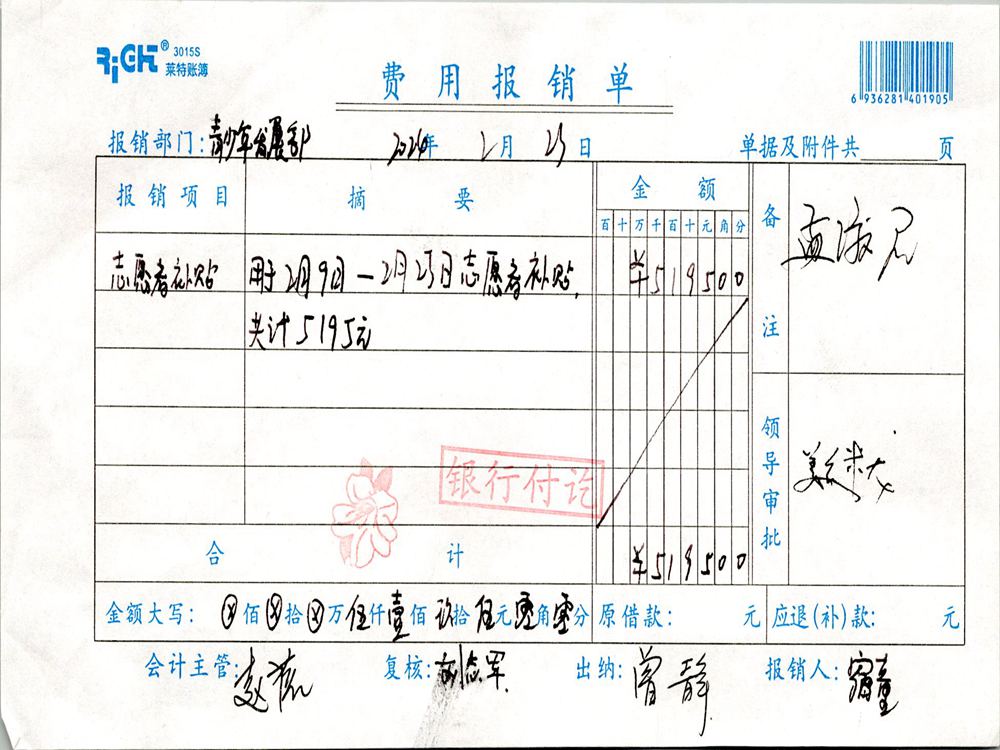 RiGHT® 3015S
莱特账簿
费用报销单
6 936281 401905
报销部门:青少年发展部 2024年 2月 23日 单据及附件共 页
报销项目 摘要 金额 备注
百十万千百十元角分
志愿者补贴 用于2月9日—2月23日志愿者补贴, ¥519500
共计5195元
领导审批
银行付讫
合计 ¥519500
金额大写: ⊗佰⊗拾⊗万伍仟壹佰玖拾伍元零角零分 原借款: 元 应退(补)款: 元
会计主管: 复核: 出纳:曾静 报销人: